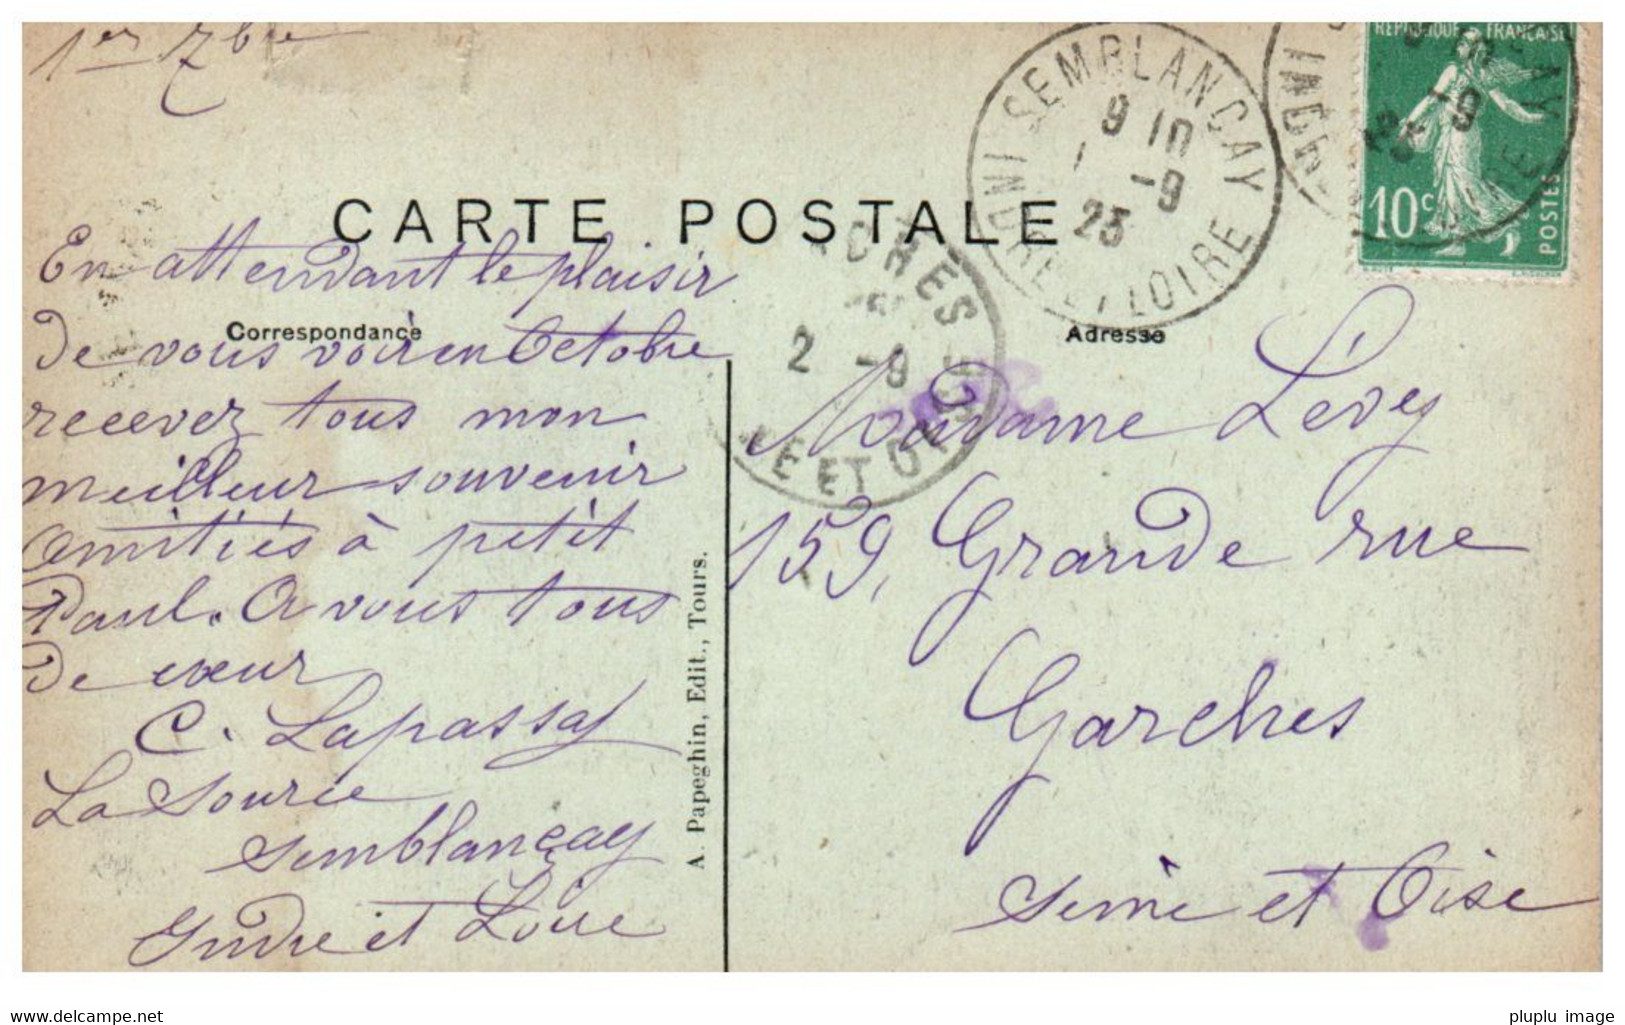 1er 7bre
CARTE POSTALE
Correspondance
Adresse
En attendant le plaisir
de vous voir en Octobre
recevez tous mon
meilleur souvenir
amitiés à petit
Paul. A vous tous
de cœur
C. Lapassat
La Source
Semblançay
Indre et Loire
A. Papeghin, Edit., Tours.
Madame Lévy
159, Grande rue
Garches
Seine et Oise
SEMBLANÇAY
9 10
1 -9
23
INDRE ET LOIRE
2 -9
REPUBLIQUE FRANÇAISE
10c
POSTES
www.delcampe.net
pluplu image